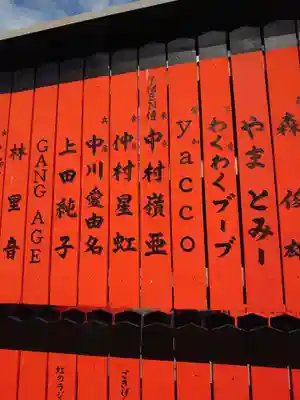 森俊
やまとみー
わくわくブーブ
yacco
中村嶺亜
仲村星虹
中川愛由名
上田純子
GANG AGE
林里音